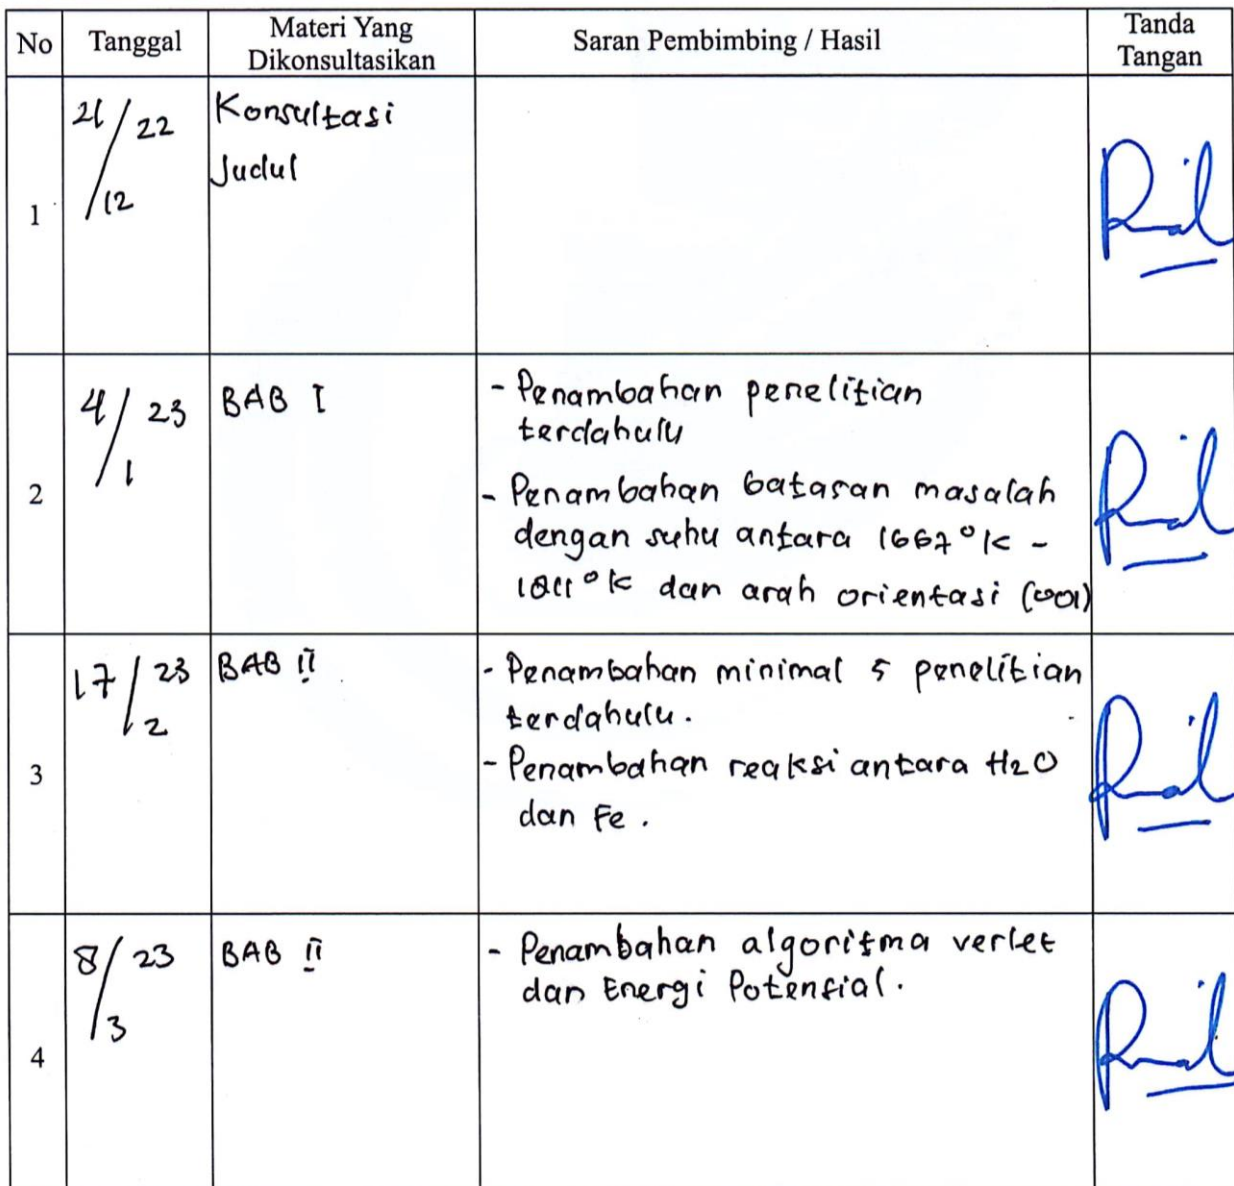 No Tanggal Materi Yang Dikonsultasikan Saran Pembimbing / Hasil Tanda Tangan
1
21/12 22
Konsultasi
Judul
2
4/1 23
BAB I
- Penambahan penelitian
terdahulu
- Penambahan batasan masalah
dengan suhu antara 1667°K -
1811°K dan arah orientasi (001)
3
17/2 23
BAB II
- Penambahan minimal 5 penelitian
terdahulu.
- Penambahan reaksi antara H2O
dan Fe.
4
8/3 23
BAB II
- Penambahan algoritma verlet
dan Energi Potensial.